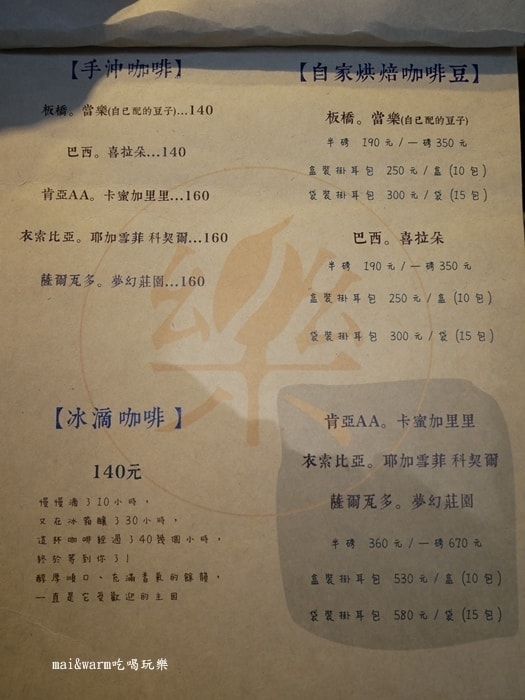 【手沖咖啡】
板橋。當樂(自己配的豆子)...140
巴西。喜拉朵...140
肯亞AA。卡蜜加里里...160
衣索比亞。耶加雪菲 科契爾...160
薩爾瓦多。夢幻莊園...160
【冰滴咖啡】
140元
慢慢滴了10小時，
又在冰箱釀了30小時，
這杯咖啡經過了40幾個小時，
終於等到你了!
醇厚順口、充滿香氣的餘韻，
一直是它受歡迎的主因
【自家烘焙咖啡豆】
板橋。當樂(自己配的豆子)
半磅 190元/一磅350元
盒裝掛耳包 250元/盒(10包)
袋裝掛耳包 300元/袋(15包)
巴西。喜拉朵
半磅 190元/一磅350元
盒裝掛耳包 250元/盒(10包)
袋裝掛耳包 300元/袋(15包)
肯亞AA。卡蜜加里里
衣索比亞。耶加雪菲 科契爾
薩爾瓦多。夢幻莊園
半磅 360元/一磅670元
盒裝掛耳包 530元/盒(10包)
袋裝掛耳包 580元/袋(15包)
樂
mai&warm吃喝玩樂